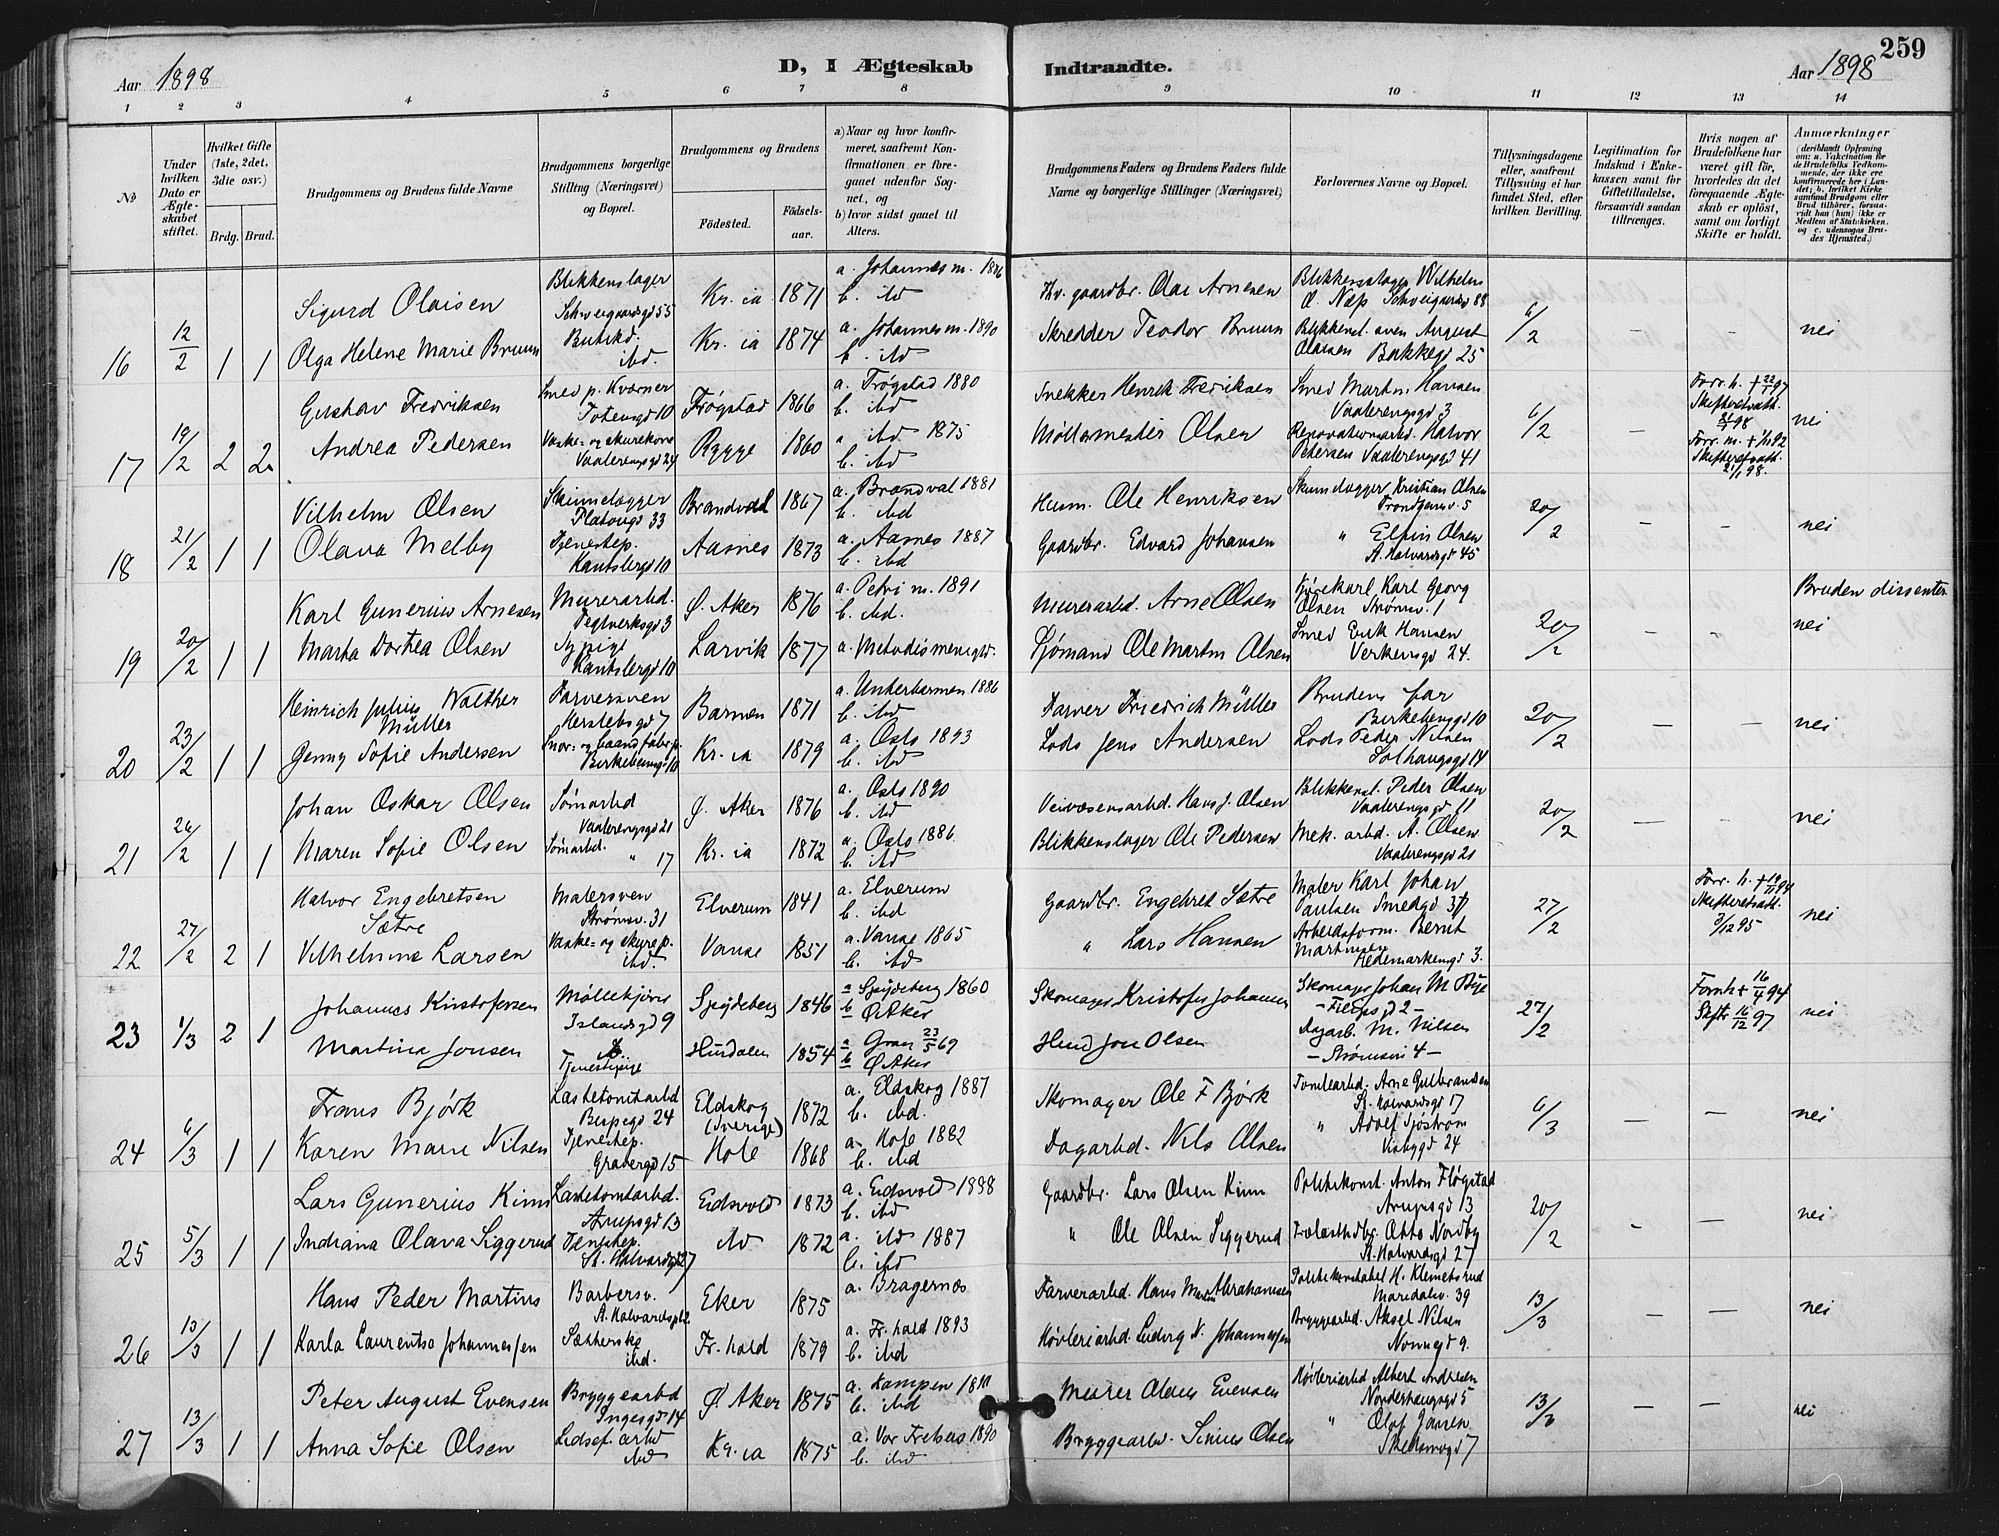 Aar 1898
D, I Ægteskab Indtraadte.
Aar 1898
259
1 2 3 4 5 6 7 8 9 10 11 12 13 14
No
Under hvilken Dato er Ægteskabet stiftet.
Hvilket Gifte (1ste, 2det, 3die osv.)
Brdg. Brud.
Brudgommens og Brudens fulde Navne
Brudgommens borgerlige Stilling (Næringsvei) og Bopæl.
Brudgommens og Brudens
Födested.
Födsels-aar.
a) Naar og hvor konfirmeret, saafremt Konfirmationen er foregaaet udenfor Sognet, og
b) hvor sidst gaaet til Alters.
Brudgommens Faders og Brudens Faders fulde Navne og borgerlige Stillinger (Næringsvei).
Forlovernes Navne og Bopæl.
Tillysningsdagene eller, saafremt Tillysning ei har fundet Sted, efter hvilken Bevilling.
Legitimation for Indskud i Enkekassen samt for Giftetilladelse, forsaavidt saadan tiltrænges.
Hvis nogen af Brudefolkene har været gift før, hvorledes da det foregaaende Ægteskab er oplöst, samt om lovligt Skifte er holdt.
Anmærkninger (deriblandt Oplysning om: a. Vakcination for de Brudefolks Vedkommende, der ikke ere konfirmerede her i Landet; b. hvilket Kirkesamfund Brudgom eller Brud tilhörer, forsaavidt han (hun) ikke er Medlem af Statskirken, og c. udensogns Brudes Hjemsted.)
16 12/2 1 1
Sigurd Olaisen Blikkenslager Schweigaardsgd 55 Kr.ia 1871 a. Johannes m. 1886 b. ibd Gaardbr. Olai Arnesen Blikkenslager Wilhelm O. Næp Schweigaardsgd 88 6/2 - - nei
Olga Helene Marie Bruun Butikd. ibd. Kr.ia 1874 a. Johannes m. 1890 b. ibd Skredder Teodor Bruun Blikkensl. sven August Olaisen Bakkegd 25
17 19/2 2 2
Gustav Fredriksen Smed p. Kværner Totengd 10 Trøgstad 1866 a. Trøgstad 1880 b. ibd Snekker Henrik Fredriksen Smed Martin Hansen Vaalerengsgd 3 6/2 - nei
Andrea Pedersen Vaske- og skurekone Vaalerengsgd 24 Rygge 1860 a. ibd. 1875 b. ibd Møllermester Olsen Renovationsarbd. Halvor Petersen Vaalerengsgd 41
18 21/2 1 1
Vilhelm Olsen Skinnelægger Platousgd 33 Brandval 1867 a. Brandval 1881 b. ibd Husm. Ole Henriksen Skinnelægger Kristian Olsen 20/2 - - nei
Olava Melby Tjenestep. Kantsbergd 10 Aasnes 1873 a. Aasnes 1887 b. ibd Gaardbr. Edvard Johansen " Olsen St. Halvardsgd 45
19 20/2 1 1
Karl Gunerius Arnesen Murerarbd. Teglverksgd 3 Ø. Aker 1876 a. Petri m. 1891 b. ibd. Murerarbd. Arne Olsen Kjørekarl Karl Georg Olsen Strømsv. 1 20/2 - - Bruden dissenter nei
Marta Dortea Olsen Sypige Kantsbergd 10 Larvik 1877 a. Metodismenighd. Sjømand Ole Martin Olsen Smed Erik Hansen Verkensgd 24.
20 23/2 1 1
Heinrich Julius Walther Müller Farversven Herslebsgd 7 Barmen 1871 a. Unterbarmen 1886 b. ibd Farver Friedrich Müller Brudens far Birkebengd 10 20/2 - - nei
Genny Sofie Andersen Snor- og baandfabr.p. Birkebeinergd 10 Kr.ia 1879 a. Oslo 1893 b. ibd Lods Jens Andersen Lods Peder Nilsen Solhaugsgd 14
21 26/2 1 1
Johan Oskar Olsen Sømarbd Vaalerengsgd 21 Ø. Aker 1876 a. Oslo 1890 b. ibd Veivæsensarbd. Hans J. Olsen Blikkensl. Peder Olsen Vaalerengsgd 11 20/2 - - nei
Maren Sofie Olsen Sømarbd. " 17 Kr.ia 1872 a. Oslo 1886 b. ibd Blikkenslager Ole Pedersen Mek. arbd. A. Olsen Vaalerengsgd 21
22 27/2 2 1
Halvor Engebretsen Sætre Malersven Strømsv. 31 Elverum 1841 a. Elverum b. ibd Gaardbr. Engebret Sætre Maler Karl Johan Paulsen Smedgd 37 27/2 Forr. h. + 19/11 94 Skifteretsatt. 3/12 95 nei
Vilhelmine Larsen Vaske- og skurep. ibd. Vanse 1851 a. Vanse 1865 b. ibd " Lars Hansen Arbeidsform. Bernt Martinsen Hedemarkengd 3.
23 1/3 2 1
Johannes Kristofersen Møllekjører Islandsgd 9 Spydeberg 1846 a Spydeberg 1860 b Ø Aker Skomager Kristofer Johannes Skomager Johan M. Bye 27/2 Forr. h + 16/4 94 Skftr 16/12 97 nei
Martina Jonsen Tjenestepige Hurdalen 1854 a Gran 23/5 69 b Ø Aker Husm Jon Olsen Dagarb. M. Nilsen - Strømsvei 4 -
24 6/3 1 1
Frans Bjørk Lastetomtarbd Bispegd 24 Eldskog (Sverige) 1872 a. Eldskog 1887 b. ibd. Skomager Ole F Bjørk Tomtearbd. Arne Gulbrandsen St. Halvardsgd 17 6/3 - - nei
Karen Marie Nilsen Tjenestep. Grabergd 15 Hole 1868 a. Hole 1882 b. ibd Dagarbd. Nils Olsen " Adolf Sjøstrøm Visbygd 24
25 5/3 1 1
Lars Gunerius Kinn Lastetomtarbd. Arupsgd 13 Eidsvold 1873 a. Eidsvold 1888 b. ibd Gaardbr. Lars Olsen Kinn Politikonst. Anton Fløgstad Arupsgd 13 20/2 - - nei
Indiana Olava Siggerud Tjenstep. St. Halvardsgd 27 ibd 1872 a. ibd 1887 b. ibd " Ole Olsen Siggerud Trælasthdbr. Otto Nordby St. Halvardsgd 27
26 13/3 1 1
Hans Peder Martins Barbersv. St. Halvardspl 2 Eker 1875 a. Bragernæs Farverarbd. Hans Martin Abrahamsen Politikonstabel H. Klemetsrud Maridalsv. 39 13/3 - - nei
Karla Laurentse Johannessen ibd. Fr.hald 1879 a. Fr.hald 1893 b. ibd Høvleriarbd. Ludvig N. Johannessen Bryggearbd. Aksel Nilsen Nonnegd 9.
27 13/3 1 1
Peter August Evensen Bryggearbd Ingesgd 14 Ø. Aker 1875 a. Kampen b. ibd Murer Olaus Evensen Høvleriarbd Albert Andresen Nordenhaugsgd 5 13/3 - - nei
Anna Sofie Olsen ibd Kr.ia 1875 a. Vor Frelsers 1890 b. ibd Bryggearbd. Olsen " Olof Jansen Skedsmogd 7